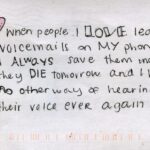 When people I LOVE lea
voicemails on MY phon
I Always save them in
they DIE tomorrow and I
no other way of hearin
their voice ever again